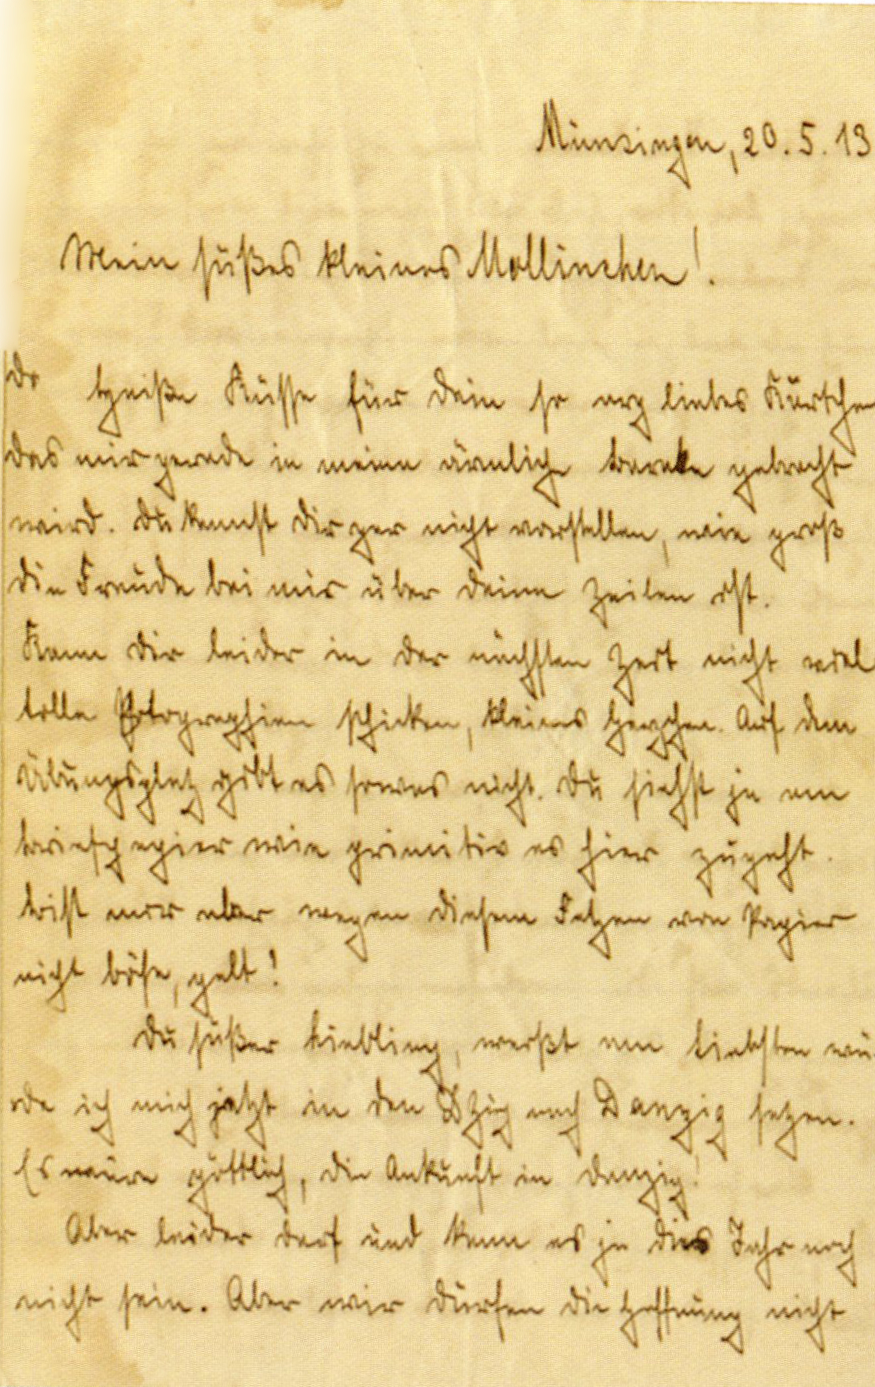 Münsingen, 20.5.13
Mein süßes kleines Mollinchen!
heiße Küsse für dein so arg liebes Kärtchen
das mir gerade in meine ärmliche baracke gebracht
wird. Du kannst dir gar nicht vorstellen, wie groß
die Freude bei mir über deine Zeilen ist.
Kann dir leider in der nächsten Zeit nicht viel
tolle Photographien schicken, kleines Herzchen. Auf dem
Übungsplatz gibt es sowas nicht. Du siehst ja am
briefpapier wie primitiv es hier zugeht.
bist mir aber wegen diesem Fetzen von Papier
nicht böse, gelt!
Du süßer Liebling, weißt am liebsten wü
rde ich mich jetzt in den Dzug nach Danzig setzen.
Es wäre göttlich, die Ankunft in Danzig!
Aber leider darf und kann es ja dies Jahr noch
nicht sein. Aber wir dürfen die Hoffnung nicht